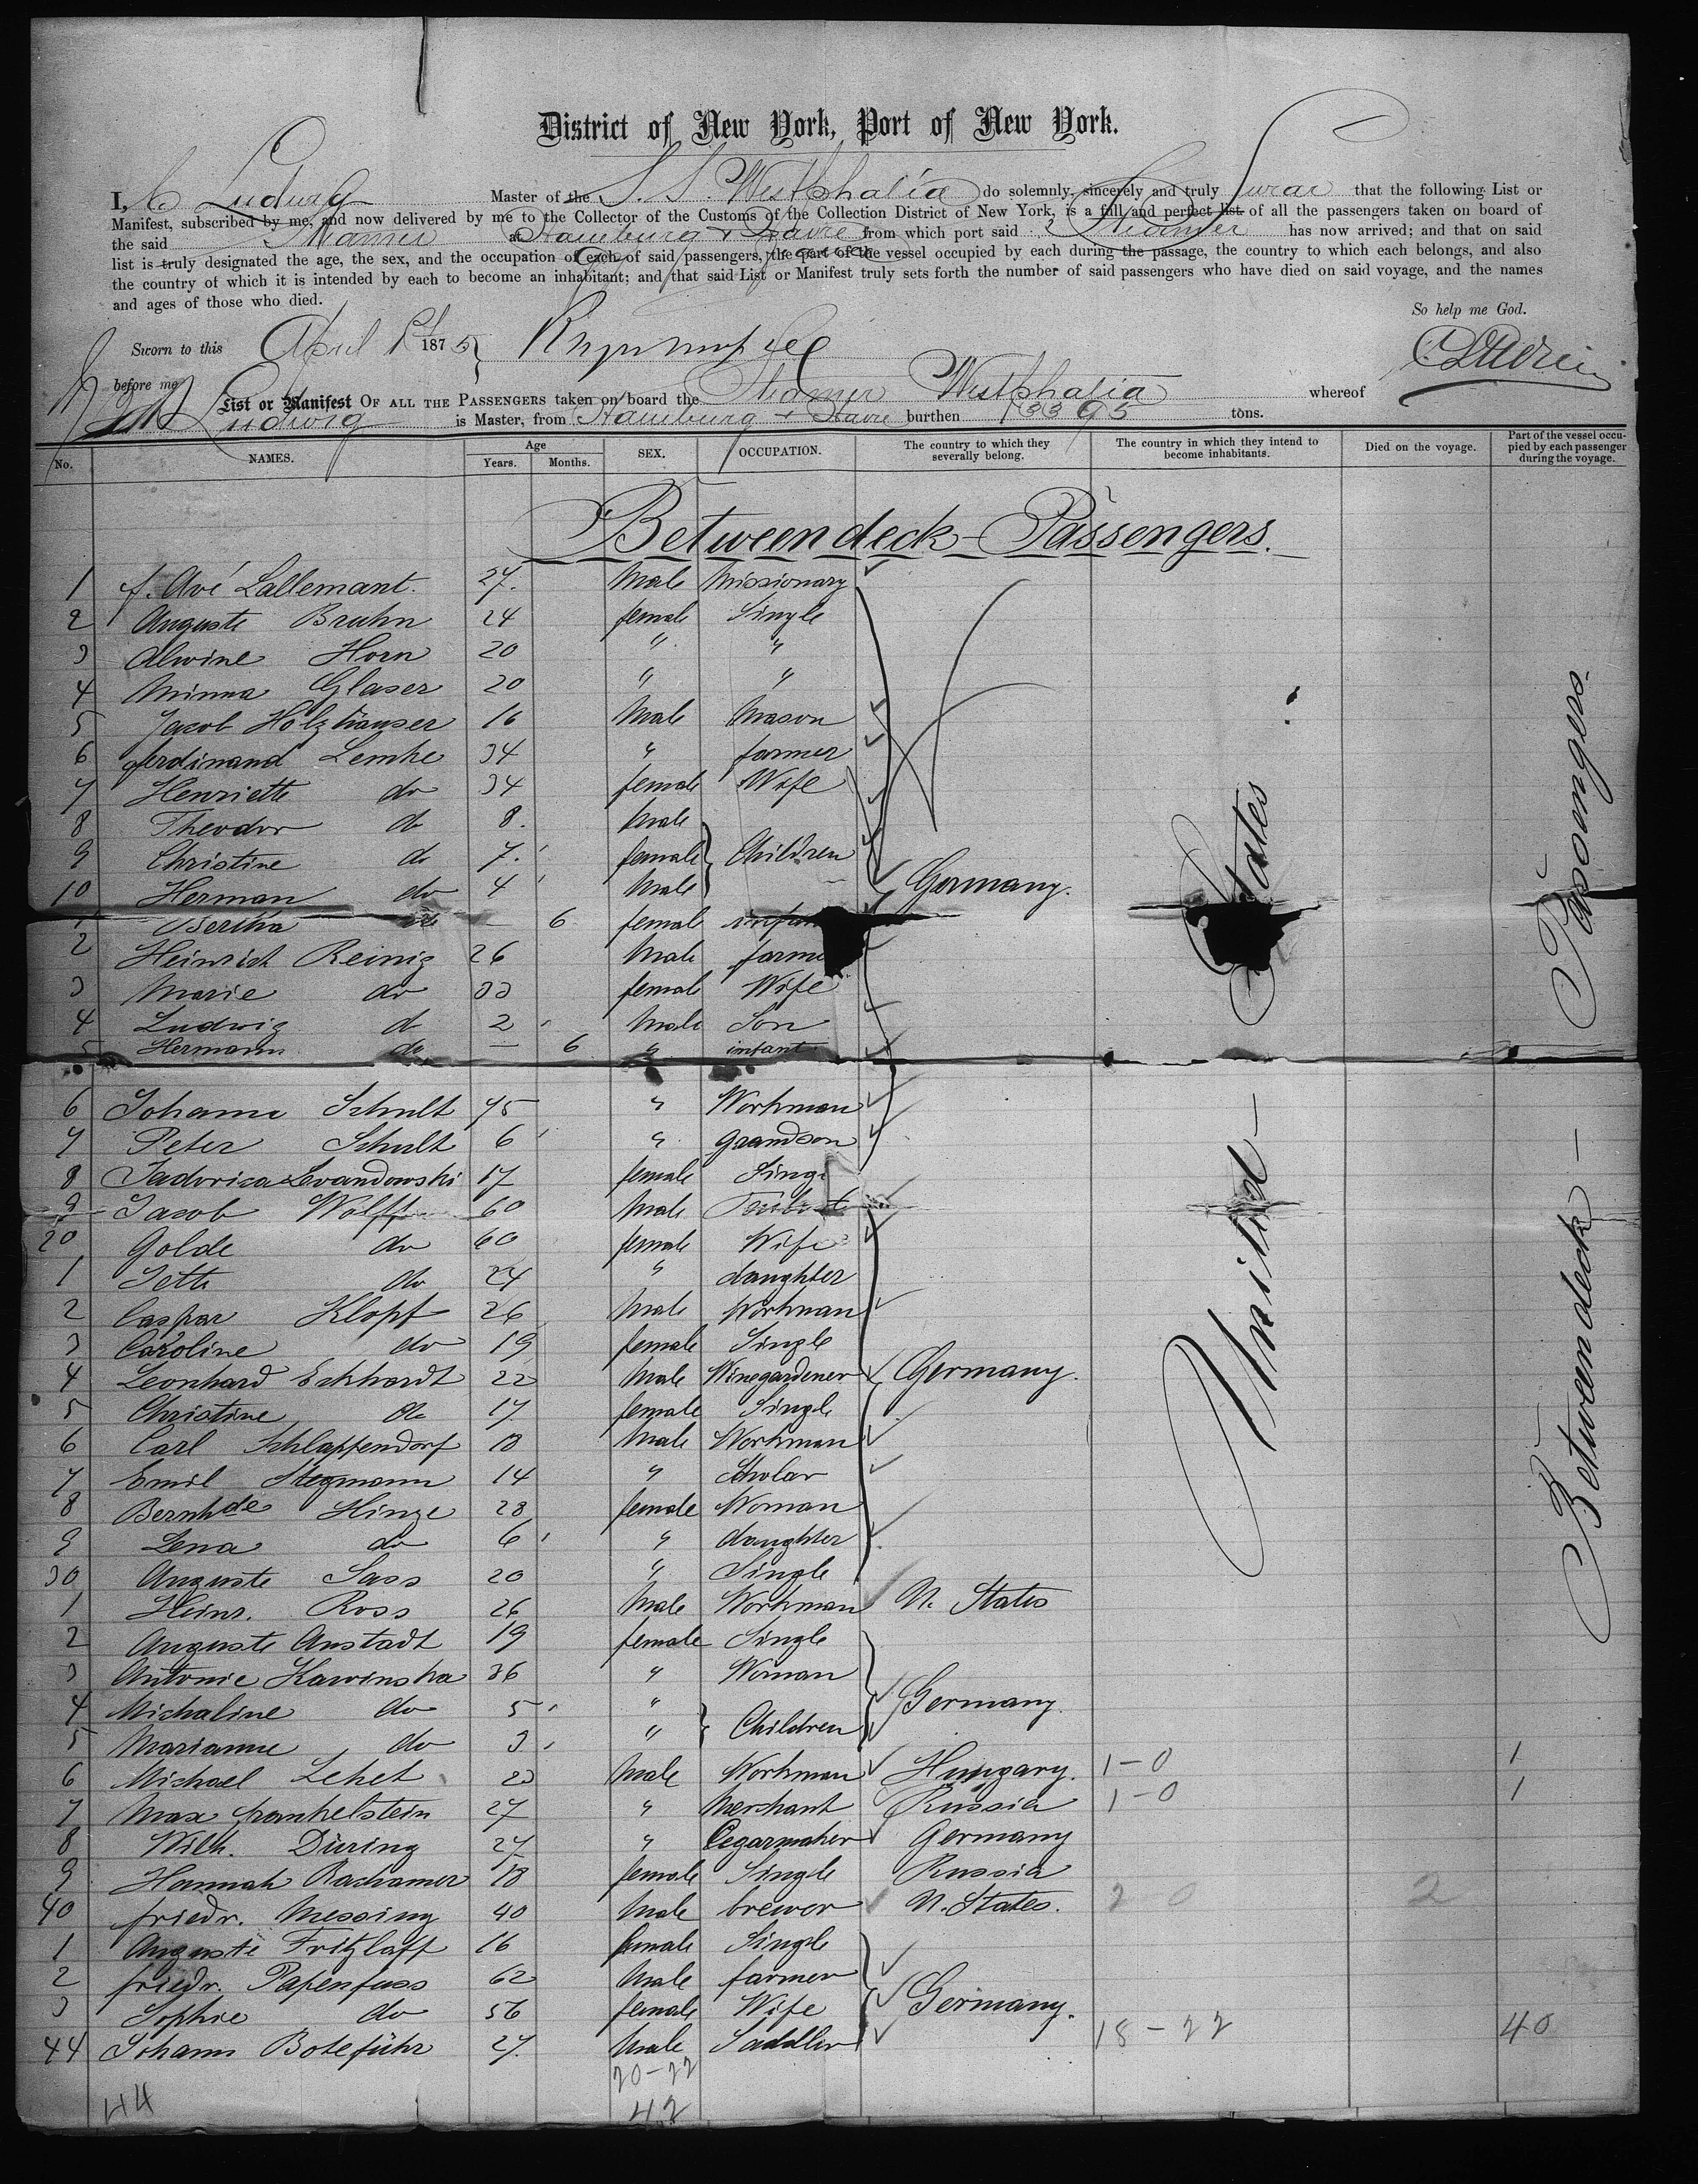 District of New York, Port of New York.
I, C Ludwig Master of the S. S. Westphalia do solemnly, sincerely and truly swear that the following List or
Manifest, subscribed by me, and now delivered by me to the Collector of the Customs of the Collection District of New York, is a full and perfect list of all the passengers taken on board of
the said Steamer at Hamburg & Havre from which port said Steamer has now arrived; and that on said
list is truly designated the age, the sex, and the occupation of each of said passengers, the part of the vessel occupied by each during the passage, the country to which each belongs, and also
the country of which it is intended by each to become an inhabitant; and that said List or Manifest truly sets forth the number of said passengers who have died on said voyage, and the names
and ages of those who died.
So help me God.
Sworn to this April 1875
before me
List or Manifest OF ALL THE PASSENGERS taken on board the Steamer Westphalia whereof
Ludwig is Master, from Hamburg & Havre burthen tons.
No. NAMES. Age Years. Months. SEX. OCCUPATION. The country to which they severally belong. The country in which they intend to become inhabitants. Died on the voyage. Part of the vessel occupied by each passenger during the voyage.
Between deck - Passengers.
1 f. Avé Lallemant. 27. Male Missionary
2 Auguste Bruhn 24 female Single
3 Alwine Horn 20 " "
4 Minna Glaser 20 " "
5 Jacob Holzhäuser 16 Male Mason
6 ferdinand Lemke 34 " farmer
7 Henriette do 34 female Wife
8 Theodor do 8. Male
9 Christine do 7. female Children
10 Herman do 4 Male Germany.
1 Bertha do — 6 female
2 Heinrich Reinig 26 Male
3 Marie do 33 female Wife
4 Ludwig do 2 Male Son
5 Hermann do — 6 " infant
6 Johann Schult 75 " Workman
7 Peter Schult 6 " Grandson
8 Levandowski 17 female
9 Jacob Wolff 60 Male
20 Golde do 60 female Wife
1 Jette do 24 " daughter
2 Caspar Klopf 26 Male Workman
3 Caroline do 19 female Single
4 Leonhard Eckhardt 22 Male Winegardener Germany.
5 Christine do 17 female Single
6 Carl Schlappendorf 18 Male Workman
7 Emil Stegmann 14 " Scholar
8 Bernhde Hinze 28 female Woman
9 Lena do 6 " daughter
30 Auguste Sass 20 " Single
1 Heinr. Ross 26 Male Workman U. States
2 Auguste Anstadt 19 female Single
3 Antonie Kawinska 36 " Woman
4 Michaline do 5 " Germany
5 Marianne do 3 " Children
6 Michael Lehet 23 Male Workman Hungary. 1-0 1
7 Max frankelstein 27 " Merchant Russia 1-0 1
8 Wilh. Düring 27 " Cegarmaker Germany
9 Hannah Rachamer 18 female Single Russia
40 friedr. Messing 40 Male brewer U. States. 2 0 2
1 Auguste Fritzlaff 16 female Single
2 friedr. Papenfuss 62 Male farmer
3 Sophie do 56 female Wife Germany.
44 Johann Boteführ 27. Male Saddler 18-22 40
20-22
44 42
United States
Between deck — Passengers.